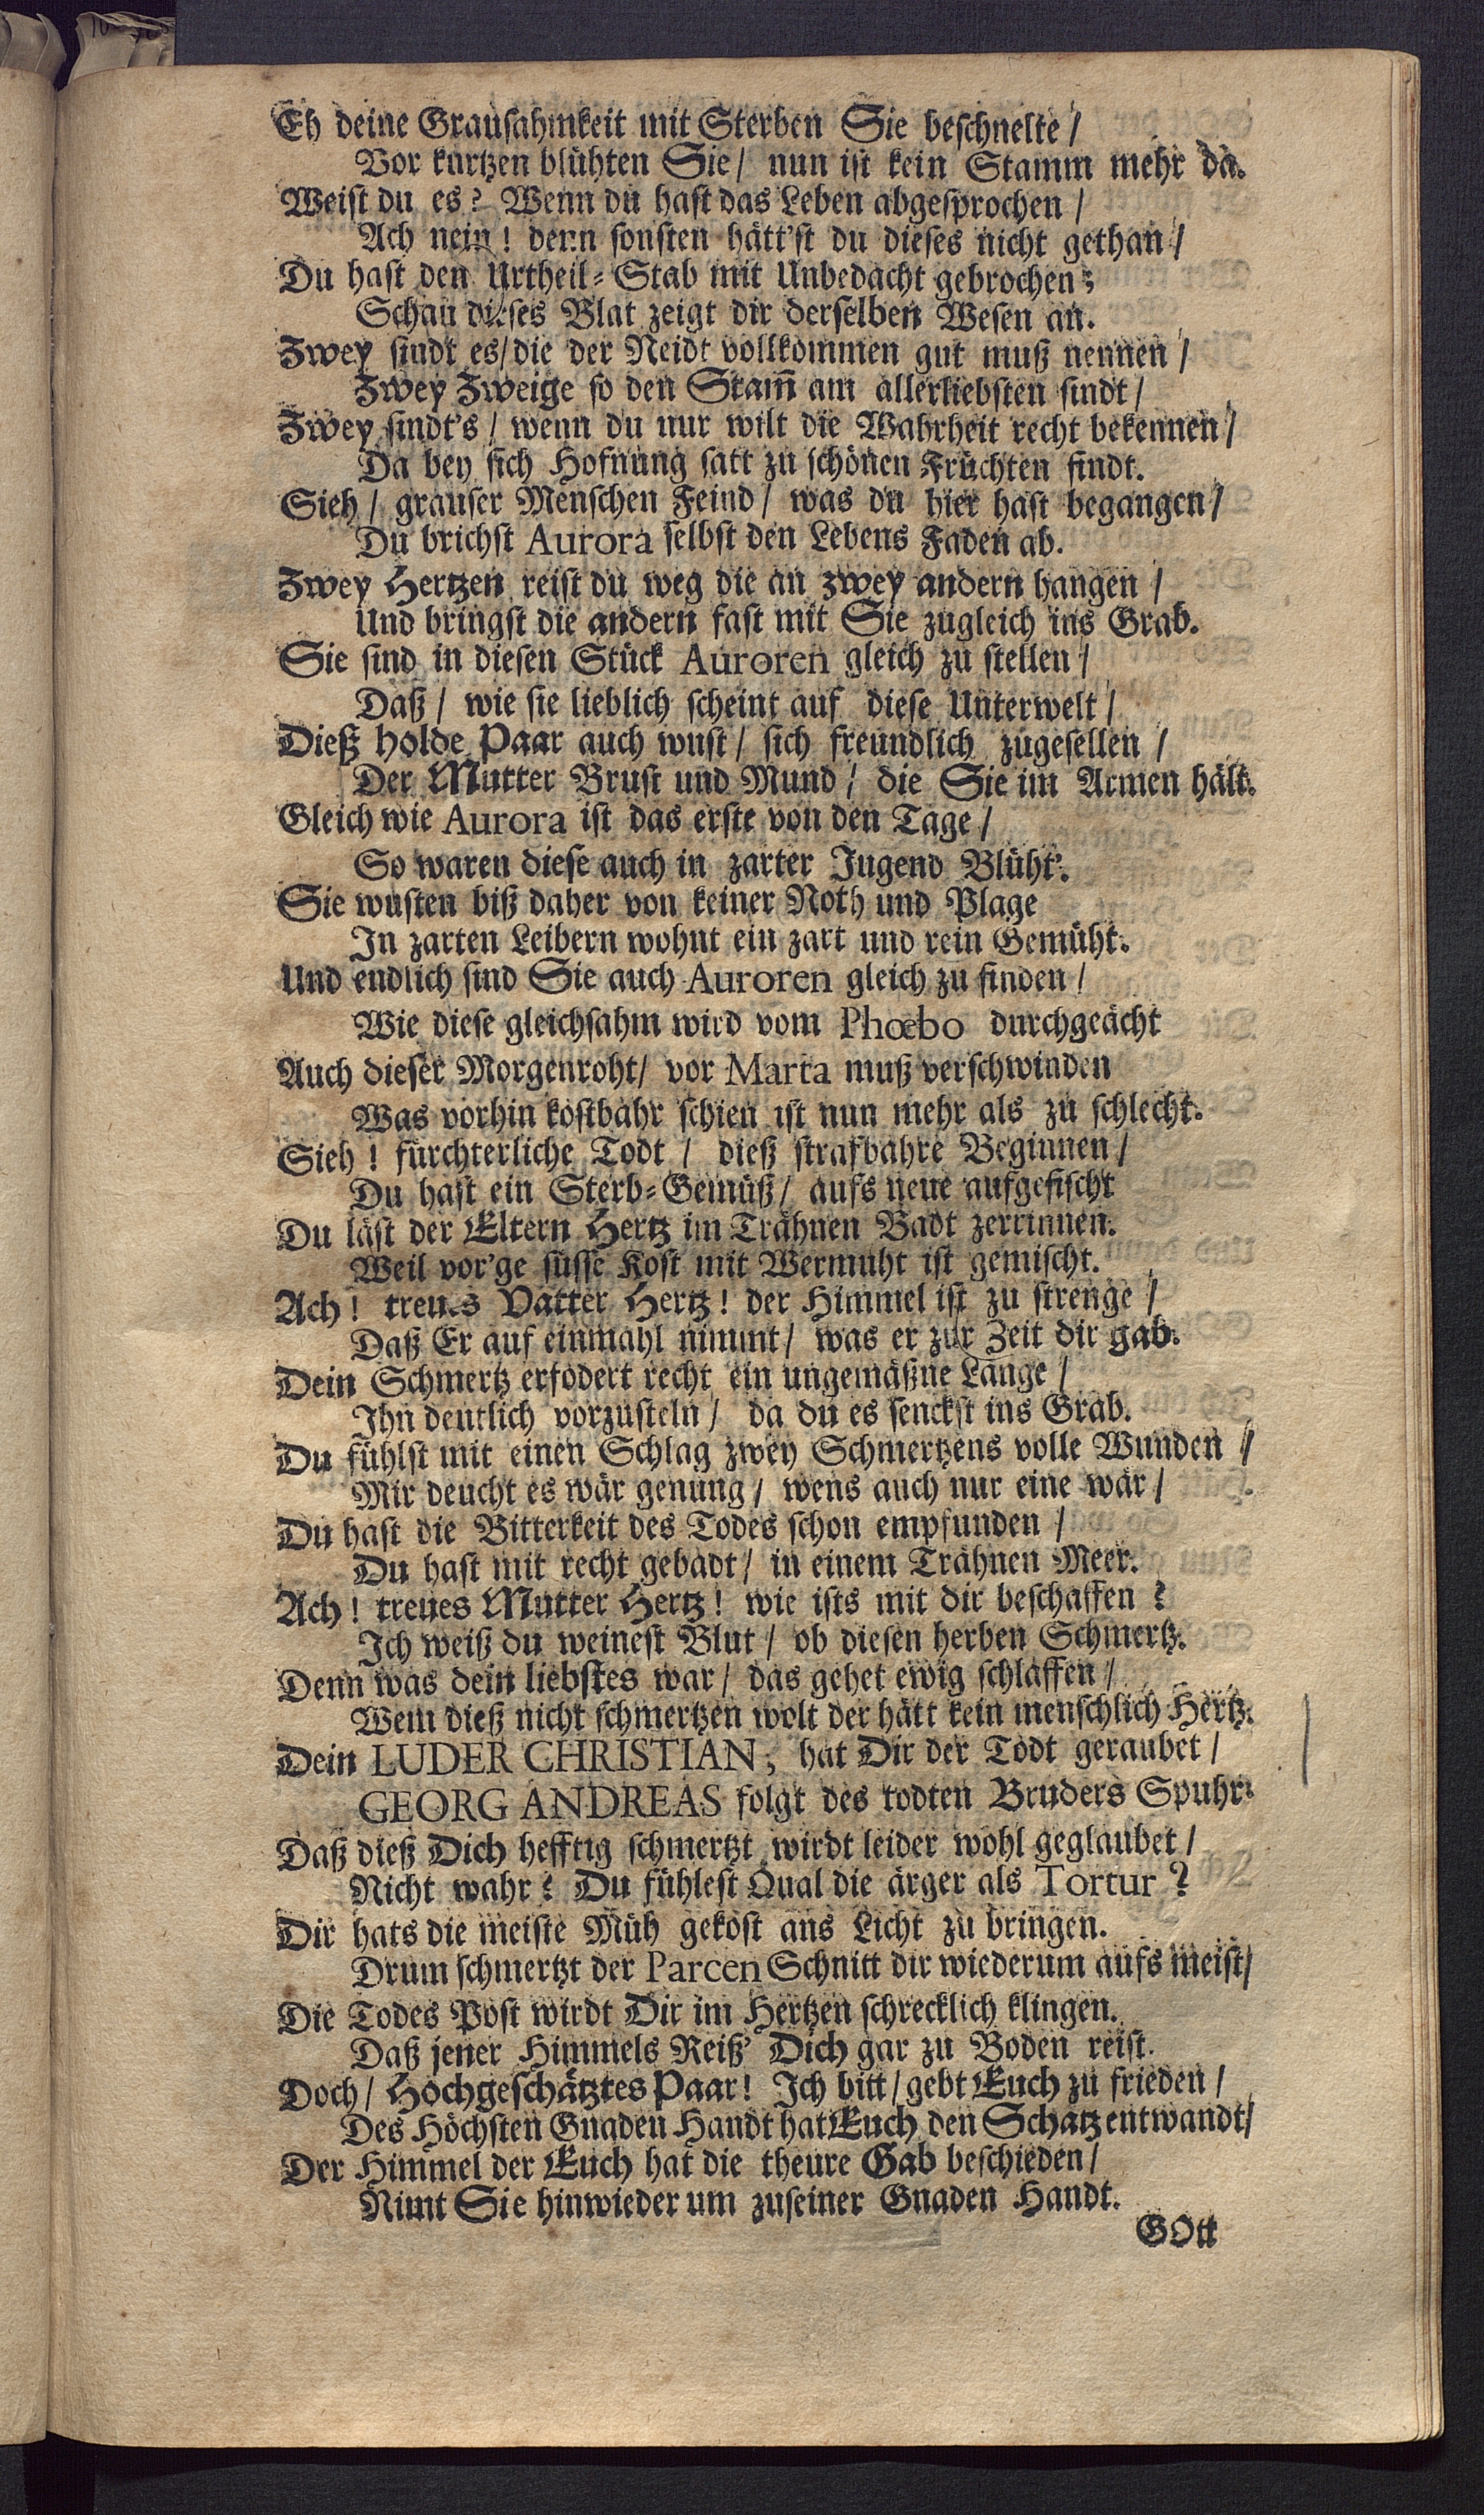 Eh deine Grausahmkeit mit Sterben Sie beschnelte /
Vor kurtzen blühten Sie / nun ist kein Stamm mehr da.
Weist du es? Wenn du hast das Leben abgesprochen /
Ach nein! denn sonsten hätt'st du dieses nicht gethan /
Du hast den Urtheil-Stab mit Unbedacht gebrochen;
Schau dieses Blat zeigt dir derselben Wesen an.
Zwey sindt es / die der Neidt vollkommen gut muß nennen /
Zwey Zweige so den Stam̄ am allerliebsten sindt /
Zwey sindt's / wenn du nur wilt die Wahrheit recht bekennen /
Da bey sich Hofnung satt zu schönen Früchten findt.
Sieh / grauser Menschen Feind / was du hier hast begangen /
Du brichst Aurora selbst den Lebens Faden ab.
Zwey Hertzen reist du weg die an zwey andern hangen /
Und bringst die andern fast mit Sie zugleich ins Grab.
Sie sind in diesen Stück Auroren gleich zu stellen /
Daß / wie sie lieblich scheint auf diese Unterwelt /
Dieß holde Paar auch wust / sich freundlich zugesellen /
Der Mutter Brust und Mund / die Sie im Armen hält.
Gleich wie Aurora ist das erste von den Tage /
So waren diese auch in zarter Jugend Blüht'.
Sie wusten biß daher von keiner Noth und Plage
In zarten Leibern wohnt ein zart und rein Gemüht.
Und endlich sind Sie auch Auroren gleich zu finden /
Wie diese gleichsahm wird vom Phœbo durchgeächt
Auch dieser Morgenroht / vor Marta muß verschwinden
Was vorhin kostbahr schien ist nun mehr als zu schlecht.
Sieh! fürchterliche Todt / dieß strafbahre Beginnen /
Du hast ein Sterb-Gemüß / aufs neue aufgefischt
Du läst der Eltern Hertz im Trähnen Badt zerrinnen.
Weil vor'ge süsse Kost mit Wermuht ist gemischt.
Ach! treues Vatter Hertz! der Himmel ist zu strenge /
Daß Er auf einmahl nimmt / was er zur Zeit dir gab.
Dein Schmertz erfodert recht ein ungemäßne Länge /
Ihn deutlich vorzusteln / da du es senckst ins Grab.
Du fühlst mit einen Schlag zwey Schmertzens volle Wunden /
Mir deucht es wär genung / wens auch nur eine wär /
Du hast die Bitterkeit des Todes schon empfunden /
Du hast mit recht gebadt / in einem Trähnen Meer.
Ach! treues Mutter Hertz! wie ists mit dir beschaffen?
Ich weiß du weinest Blut / ob diesen herben Schmertz.
Denn was dein liebstes war / das gehet ewig schlaffen /
Wem dieß nicht schmertzen wolt der hätt kein menschlich Hertz.
Dein LUDER CHRISTIAN, hat Dir der Todt geraubet /
GEORG ANDREAS folgt des todten Bruders Spuhr.
Daß dieß Dich hefftig schmertzt wirdt leider wohl geglaubet /
Nicht wahr? Du fühlest Qual die ärger als Tortur?
Dir hats die meiste Müh gekost ans Licht zu bringen.
Drum schmertzt der Parcen Schnitt dir wiederum aufs meist /
Die Todes Post wirdt Dir im Hertzen schrecklich klingen.
Daß jener Himmels Reiß' Dich gar zu Boden reist.
Doch / Hochgeschätztes Paar! Ich bitt / gebt Euch zu frieden /
Des Höchsten Gnaden Handt hat Euch den Schatz entwandt /
Der Himmel der Euch hat die theure Gab beschieden /
Nimt Sie hinwieder um zuseiner Gnaden Handt.
GOtt